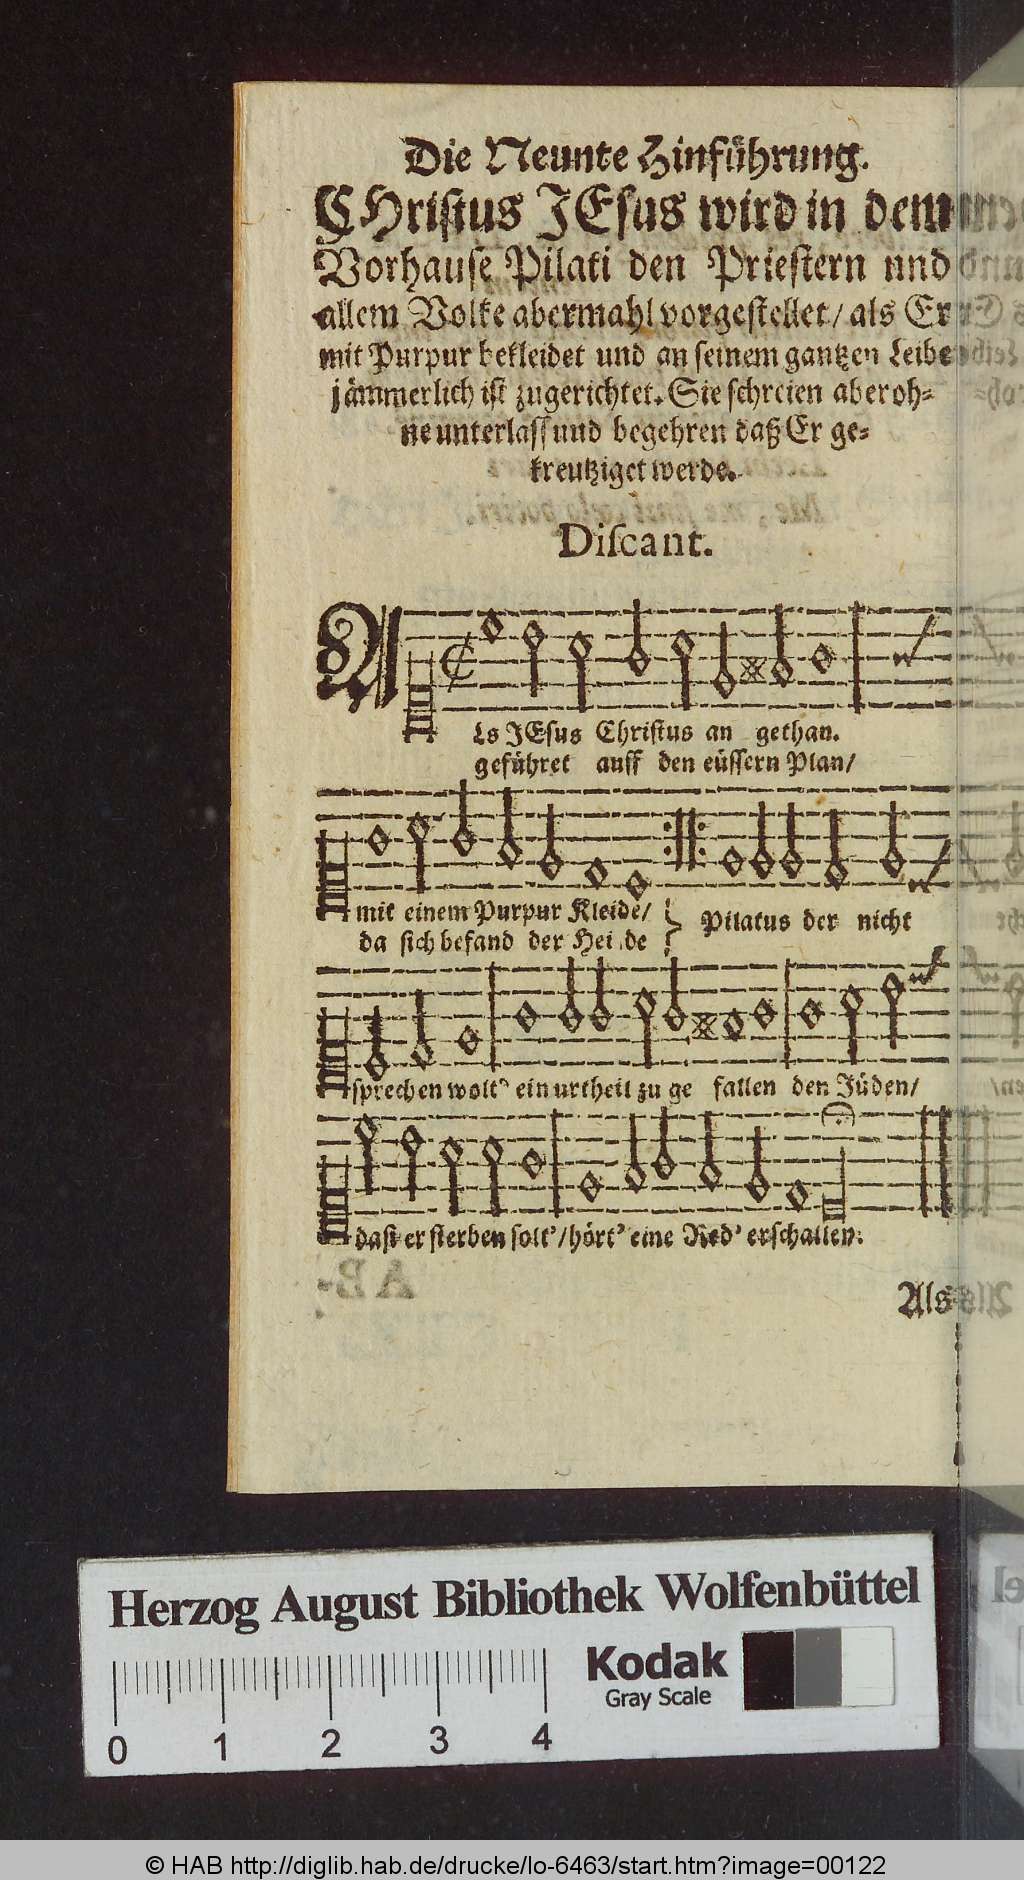 Die Neunte Hinführung.
CHristus JEsus wird in dem
Vorhause Pilati den Priestern und
allem Volke abermahl vorgestellet/ als Er
mit Purpur bekleidet und an seinem gantzen Leibe
jämmerlich ist zugerichtet. Sie schreien aber oh-
ne unterlass und begehren daß Er ge-
kreutziget werde.
Discant.
Als JEsus Christus an gethan.
geführet auff den eüssern Plan/
mit einem Purpur Kleide/
da sich befand der Hei de
Pilatus der nicht
sprechen wolt' ein urtheil zu ge fallen den Jüden/
dast er sterben solt'/ hört' eine Red' erschallen:
Als
Herzog August Bibliothek Wolfenbüttel
Kodak
Gray Scale
0 1 2 3 4
© HAB http://diglib.hab.de/drucke/lo-6463/start.htm?image=00122